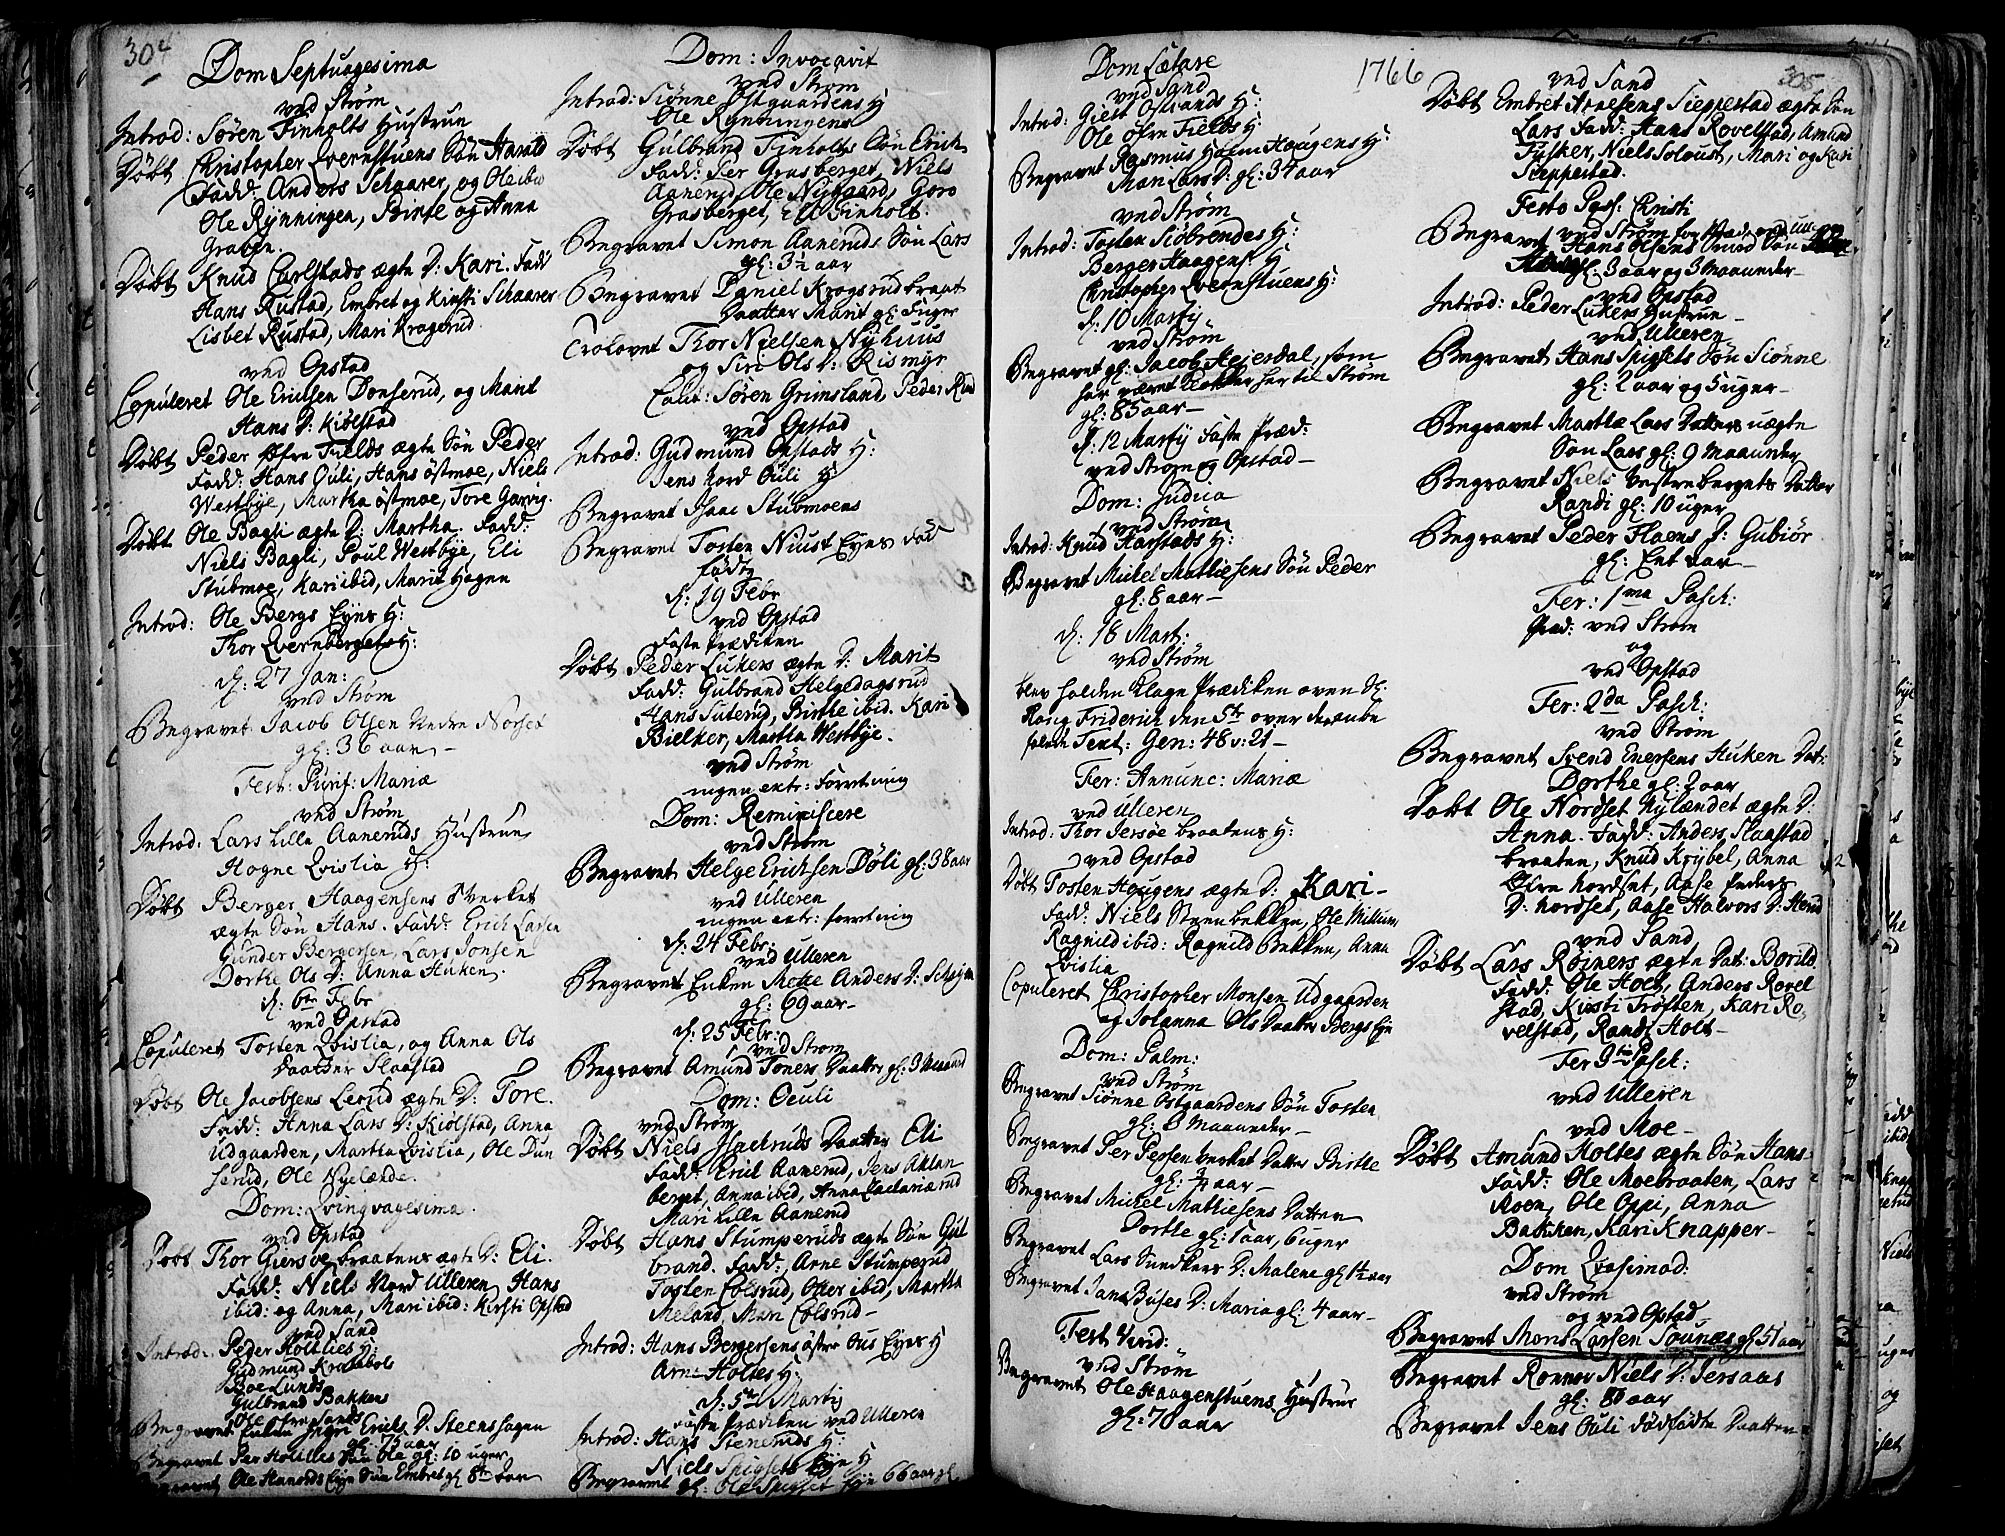 304
Dom Septuagesima
ved Strøm
Introd: Søren Finholts Hustrue
Døbt Christopher Qvernstuens Søn Harald
Fadd: Anders Schaarer, og Ole ibid
Ole Rynningen, Birthe og Anna
Graben.
Døbt Knud Carlstads ægte D: Kari. Fadd
Hans Rustad, Embret og Kirsti Schaarer
Lisbet Rustad, Mari Kragerud.
ved Opstad
Copuleret Ole Erichsen Donserud, og Marit
Hans D: Kiølstad
Døbt Peder Øfre Fields ægte Søn Peder
Fadd: Hans Ouli, Hans Østmoe, Niels
Westbye, Martha Østmoe, Tore
Døbt Ole Bagli ægte D: Martha. Fadd:
Niels Bagli, Poul Westbye, Eli
Stubmoe, Kari ibid, Marit Hagen
Introd: Ole Bergs Eyes H:
Thor Qvernbergets H:
d: 27 Jan:
ved Strøm
Begravet Jacob Olsen Norset
gl: 36 aar –
Fest: Purif: Mariæ
ved Strøm
Introd: Lars Lille Aanerуds Hustrue
Hogne Qvislia H:
Døbt Berger Haagensens Værket
ægte Søn Hans. Fadd: Erich Larsen
Gunder Bergersen, Lars Jonsen
Dorthe Ols D: Anna Huken.
d: 6te Febr
ved Opstad
Copuleret Tosten Qvislia, og Anna Ols
Daatter Slaastad
Døbt Ole Jacobsens Lerud ægte D: Tore.
Fadd: Anna Lars D: Kiølstad, Anna
Udgaarden, Martha Qvislia, Ole Dun
serud, Ole Nyelænde.
Dom: Qvinqvagesima.
ved Opstad
Døbt Thor Giersøe braatens ægte D: Eli.
Fadd: Niels Nord Ulleren, Hans
ibid: og Anna, Mari ibid: Kirsti Opstad
ved Sand
Introd: Peder Holtlies H:
Gudmund Krakabøls
Boe Lunds
Gulbrand Bakkens
Ole Øfre Sands
Begravet Enken Ingri Erichs D: Steenshagen
gl: 75 aar
Begravet Per Holtlies Søn Ole gl: 10 uger
Begravet Ole Eye Søn Embret gl 8te Aar
Dom: Invocavit
ved Strøm
Introd: Siønne Ostgaardens H
Ole Rynningens
Døbt Gulbrand Finholts Søn Erich
Fadd: Per Grasberget, Niels
Aanerud, Ole Nygaard, Goro
Grasberget, Eli Finholt.
Begravet Simon Aaneruds Søn Lars
gl: 3½ aar
Begravet Daniel Kragsrud braat
Daatter Marit gl: Fuger
Trolovet Thor Nielsen Nyhuus
og Siri Ols D: Rismyr
Caut: Søren Grimsland, Peder Rud
ved Opstad
Introd: Gudmund Opstads H:
Jens Nord Ouli H
Begravet Isaac Stubmoens
Begravet Tosten Niust Eyes død
fødte
d: 19 Febr
ved Opstad
Faste Prædiken
Døbt Peder Lukers ægte D: Marit
Fadd: Gulbrand Helgedagsrud
Hans Suterud, Birthe ibid. Kari
Bielker, Martha Westbye.
ved Strøm
ingen extr: Forretning
Dom: Reminiscere
ved Strøm
Begravet Helge Erichsen Døli gl: 38 aar
ved Ulleren
ingen extr: forretning
d: 24 Febr:
ved Ulleren
Begravet Enken Mette Anders D:
gl: 69 aar –
d: 25 Febr:
ved Strøm
Begravet Amund Toners Daatter gl: 3 Maaned
Dom: Oculi
ved Strøm
Døbt Niels Daatter Eli
Fadd: Erich Aanerud, Jens Aklan
berget, Anna ibid, Anna Zachariærud
Mari Lille Aanerud
Døbt Hans Stumperuds ægte Søn Gul
brand. Fadd: Arne Stumperud
Tosten Colsrud, Otter ibid, Martha
Meland, Mari Colsrud –
Introd: Hans Bergersens Eyes H
Arne Holtes H:
d: 5te Martij
Faste Prædiken ved Ulleren
Introd: Hans Steneruds H:
Niels Spigsets Eye H
Begravet gl: Ole Spigset Eye 66 aar gl
Dom Lætare
1766
ved Sand
Introd: Giest Ostrands H:
Ole Øfre Fields H:
Begravet Rasmus Holm Haugens H:
Mari Lars D: gl: 34 aar
ved Strøm
Introd: Tosten Siøbrendes H:
Berger Haagens: H
Christopher Qvernstuens H:
d: 10 Martij
ved Strøm
Begravet gl: Jacob Heierdal, som
har været Klokker her til Strøm
gl: 85 aar –
d: 12 Martij Faste Præd:
ved Strøm og Opstad –
Dom: Judica
ved Strøm
Introd: Knud Harstads H:
Begravet Mickel Mathiesens Søn Peder
gl: 8 aar –
d: 18 Mart:
ved Strøm
blev holden Klage Prædiken over Sl:
Kong Friderich den 5te over
Text: Gen: 48 v: 21 –
Fer: Annunc: Mariæ
ved Ulleren
Introd: Thor Jersøe braatens H:
ved Opstad
Døbt Tosten Haugens ægte D: Kari –
Fadd: Niels Steenbekken, Ole Millum
Ragnild ibid: Ragnild Bekken, Anna
Qvislia
Copuleret Christopher Monsen Udgaarden
og Johanna Ols Daatter Bergs Eye
Dom: Palm:
ved Strøm
Begravet Siønne Ostgaardens Søn Tosten
gl: 8 maaneder –
Begravet Per Persen Værket Datter Birthe
gl: ¾ aar –
Begravet Mickel Mathiesens Datter
Dorthe gl: 1 aar, 6 uger
Begravet Lars Sundkers D: Malene gl 1½ aar
Begravet Jans Buses D: Maria gl: 4 aar –
Fest Virid:
ved Strøm
Begravet Ole Haagenstuens Hustrue
gl: 70 aar
305
ved Sand
Døbt Embret Sieppestad ægte Søn
Lars Fadd: Hans Rovelstad, Amund
Fusker, Niels Soloust, Mari og Kari
Sieppestad.
Festo Pass: Christi
ved Strøm
Begravet Hans Olsens Søn
gl: 3 aar og 3 Maaneder –
ved Opstad
Introd: Peder Lukers Hustrue –
ved Ulleren
Begravet Hans Spigsets Søn Siønne
gl: 2 aar og 5 uger –
Begravet Marthe Lars Datters uægte
Søn Lars gl: 9 Maaneder
Begravet Niels Vestreberget Datter
Randi gl: 10 uger
Begravet Peder Flaens D: Gubiør
gl: Eet Aar –
Fer: 1ma Pasch:
Præd: ved Strøm
og
ved Opstad
Fer: 2da Pasch:
ved Strøm
Begravet Svend Enersens Huken Dat:
Dorthe gl: 2 aar
Døbt Ole Nordset Nylændet ægte D:
Anna. Fadd: Anders Slaastad
braaten, Knud Krybel, Anna
Øfre Nordset, Aase Peders
D: Nordset, Aase Halvors D:
ved Sand
Døbt Lars Roiners ægte Dat: Borild
Fadd: Ole Holt, Anders Rovel
stad, Kirsti Trøften, Kari Ro
velstad, Randi Holt –
Fer 3tia Pasch:
ved Ulleren
ved Moe –
Døbt Amund Holtes ægte Søn Hans
Fadd: Ole Moebraaten, Lars
Roen, Ole Oppi, Anna
Bakken, Kari Knapper –
Dom Qvasimod:
ved Strøm
og ved Opstad
Begravet Mons Larsen Sounæs gl 51 aar
Begravet Ronnov Niels D: Jersaas
gl: 80 aar
Begravet Jens Ouli dødfødte Daatter